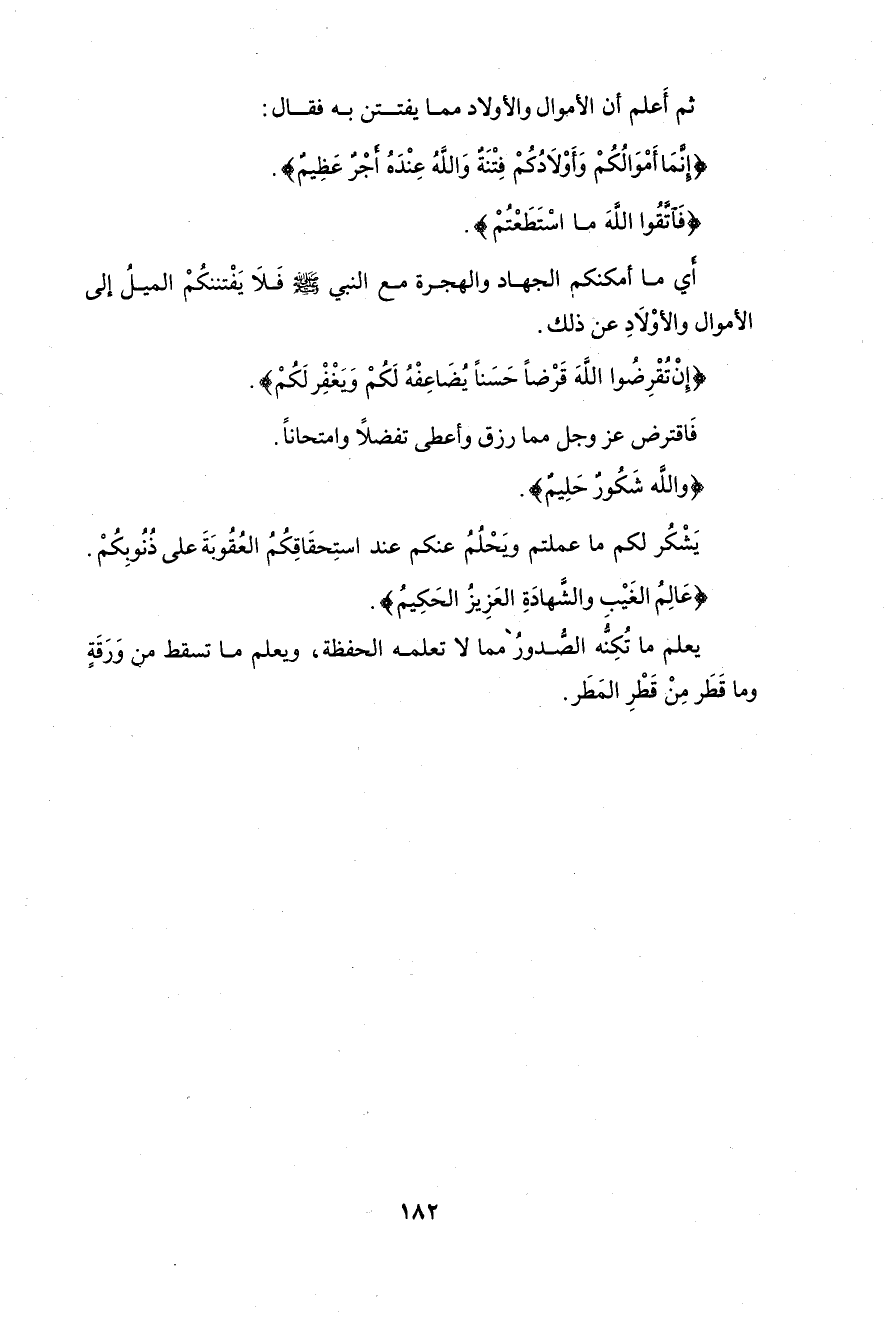 ثم أَعلم أن الأموال والأولاد ممـا يفتــتن بـه فقــال :
﴿إِنَّمَا أَمْوَالُكُمْ وَأَوْلَادُكُمْ فِتْنَةٌ وَاللَّهُ عِنْدَهُ أَجْرٌ عَظِيمٌ﴾ .
﴿فَآتَّقُوا اللَّهَ مـا اسْتَطَعْتُمْ﴾ .
أَي مـا أمكنكم الجهـاد والهجـرة مـع النبي ﷺ فَـلَا يَفْتننكُمْ الميـلُ إلى
الأموال والأوْلَادِ عن ذلك .
﴿إِنْ تُقْرِضُوا اللَّهَ قَرْضاً حَسَناً يُضَاعِفْهُ لَكُمْ وَيَغْفِْر لَكُمْ﴾ .
فَاقترض عز وجل مما رزق وأعطى تفضلًا وامتحاناً .
﴿واللَّه شَكُورٌ حَلِيمٌ﴾ .
يَشْكُر لكم ما عملتم ويَحْلُمُ عنكم عند استِحقَاقِكُمُ العُقُوبَةَ على ذُنُوبِكُمْ .
﴿عَالِمُ الغَيْبِ والشَّهادَةِ العَزِيزُ الحَكِيمُ﴾ .
يعلم ما تُكِنُّه الصُّـدورُ مما لا تعلمـه الحفظة ، ويعلم مـا تسقط من وَرَقَةٍ
وما قَطَر مِنْ قَطْرِ المَطَر .
١٨٢